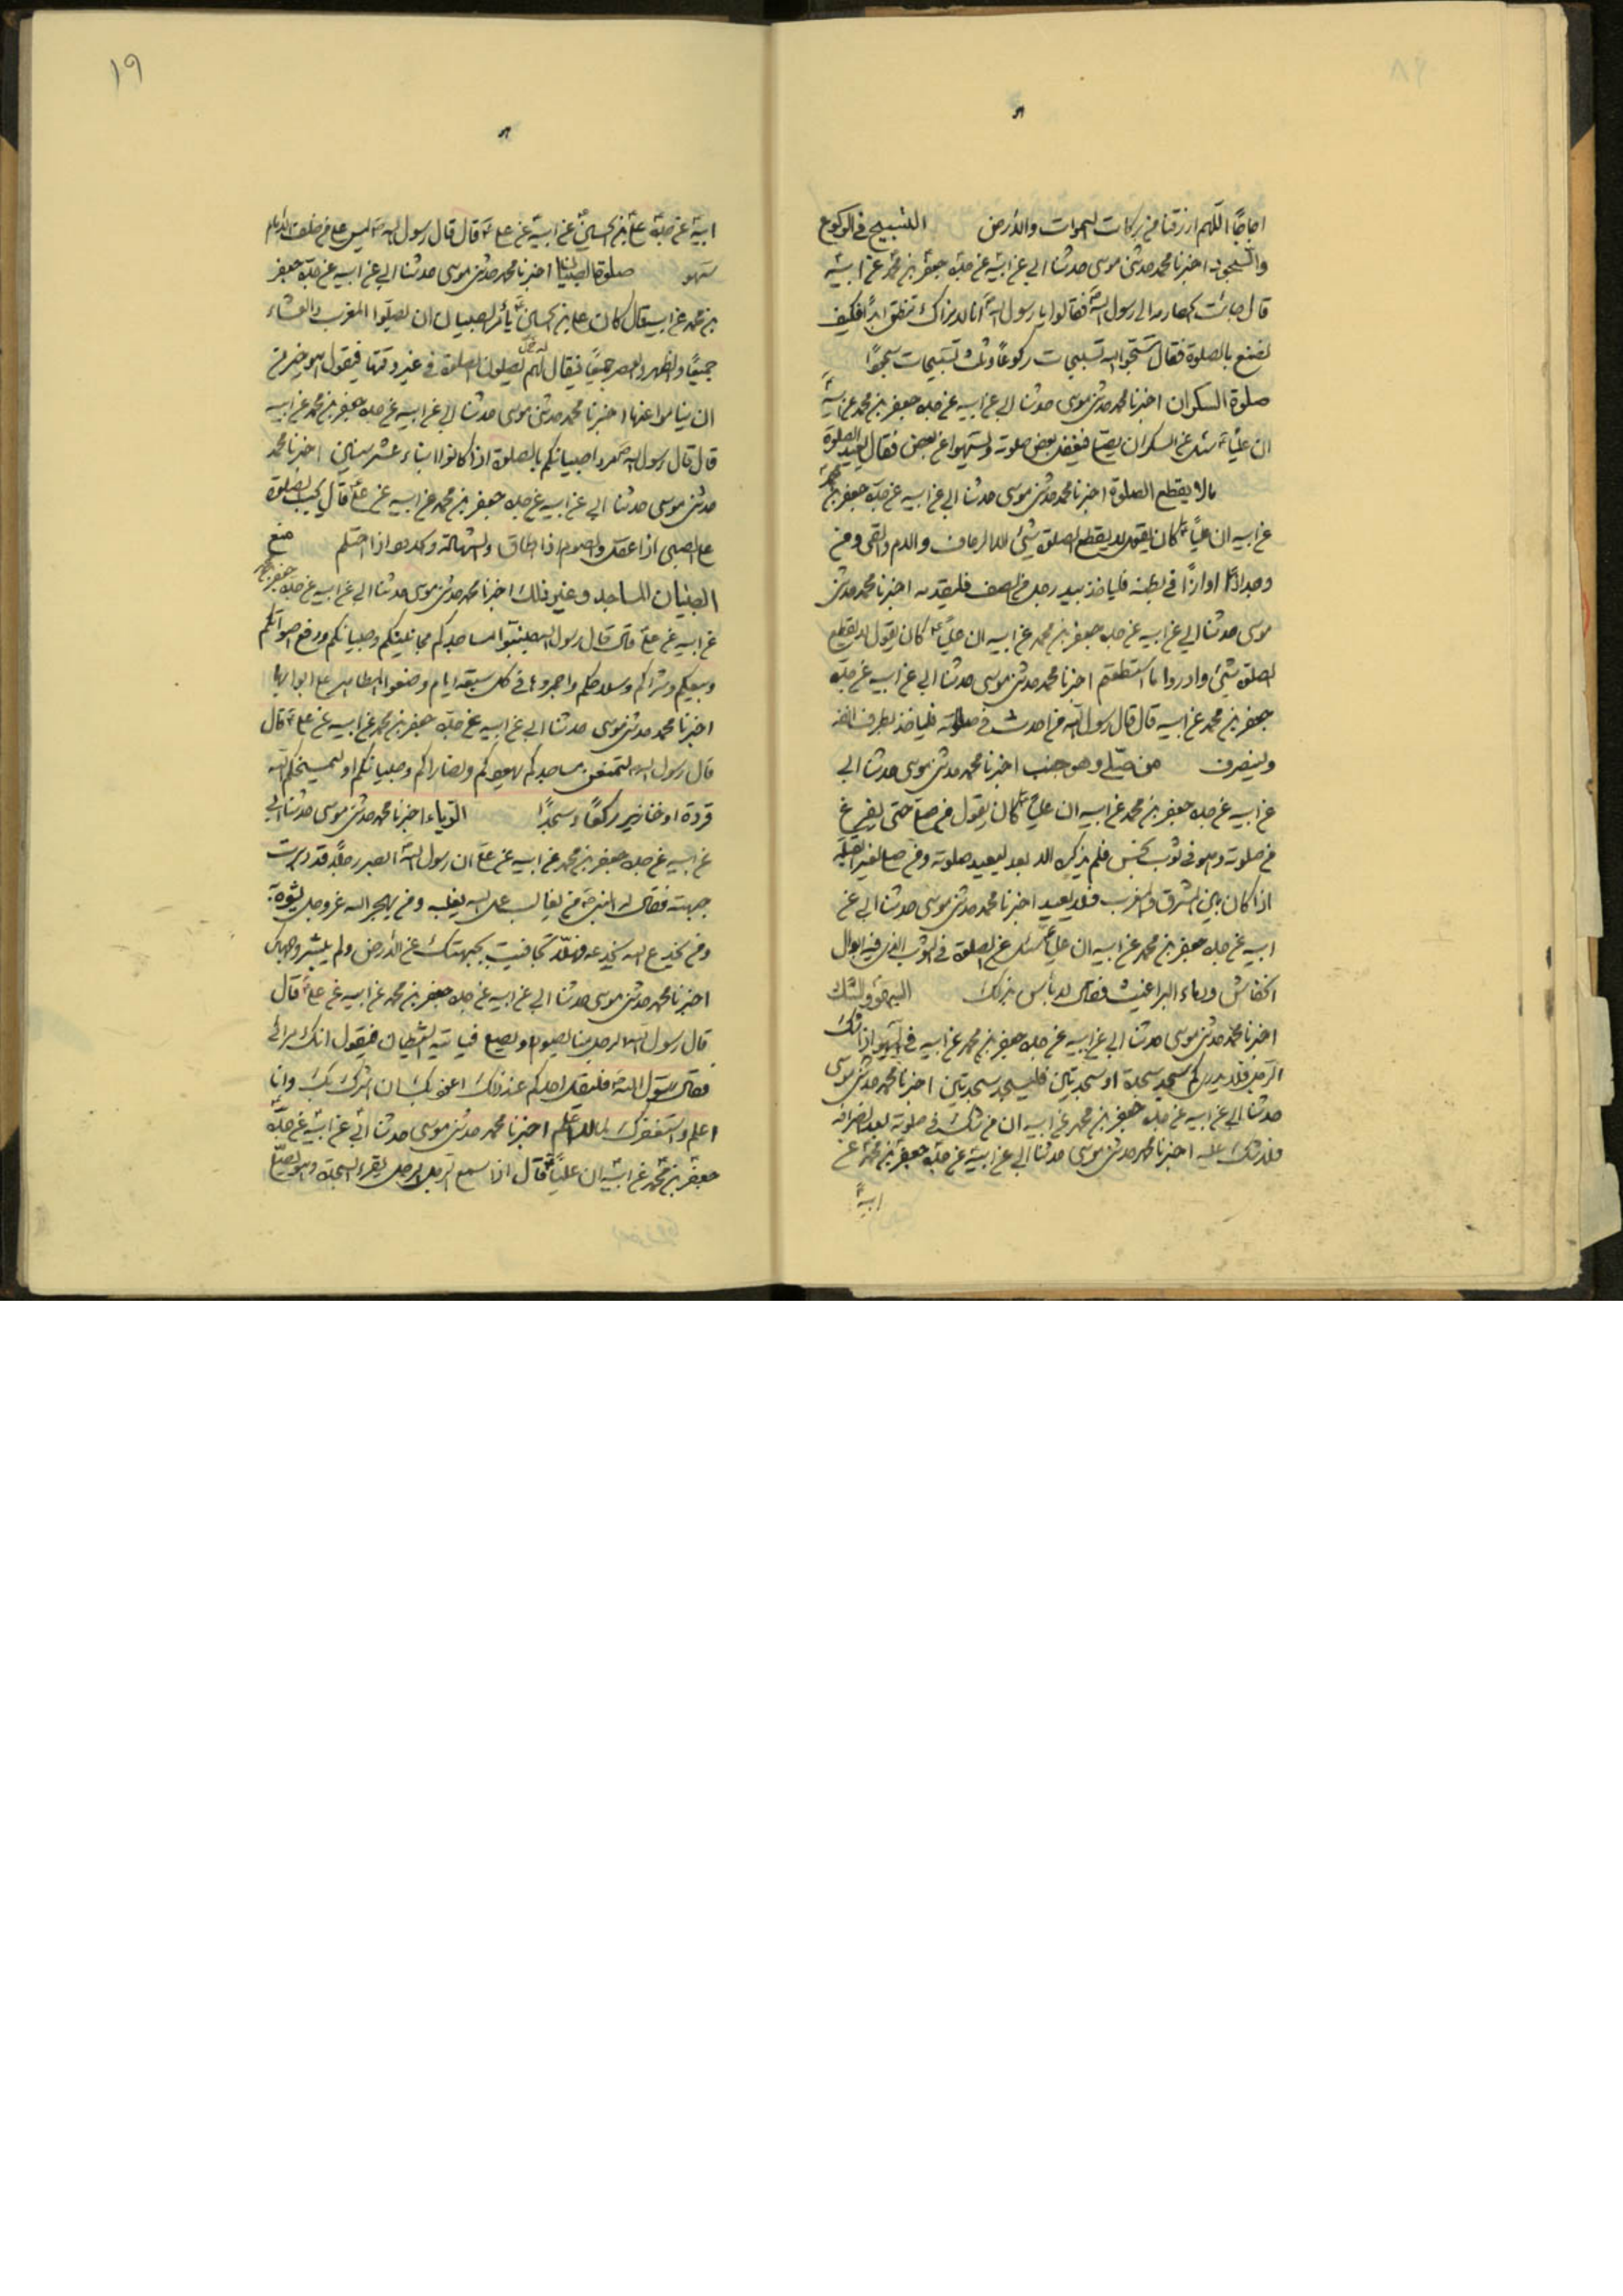 اجاجًا اللهم ارزقنا من بركات السموات والأرض التسبيح فى الركوع
والسجود اخبرنا محمد حدثنى موسى حدثنا ابى عن ابيه عن جده جعفر بن محمد عن ابيه
قال جائت الحضارمه الى رسول الله فقالوا يا رسول الله انا لا نزال ننطلق ابدًا فكيف
نصنع بالصلوة فقال سبحوا الله تسبيحات ركوعًا وثلث تسبيحات سجودًا
صلوة السكران اخبرنا محمد حدثنى موسى حدثنا ابى عن ابيه عن جده جعفر بن محمد عن ابيه
ان عليًا سئل عن السكران يصلى فيغفل بعض صلوته ويسهوا عن بعض فقال يعيد الصلوة
ما لا يقطع الصلوة اخبرنا محمد حدثنى موسى حدثنا ابى عن ابيه عن جده جعفر بن محمد
عن ابيه ان عليًا كان يقول لا يقطع الصلوة شيئ الا الرعاف والدم والقى ومن
وجد اذًى او ازًا فى بطنه فلياخذ بيد رجل من الصف فليقدمه اخبرنا محمد حدثنى
موسى حدثنا ابى عن ابيه عن جده جعفر بن محمد عن ابيه ان عليًا كان يقول لا يقطع
الصلوة شيئ وادرءوا ما استطعتم اخبرنا محمد حدثنى موسى حدثنا ابى عن ابيه عن جده
جعفر بن محمد عن ابيه قال قال رسول الله من احدث فى صلوته فلياخذ بطرف انفه
ولينصرف من صلى وهو جنب اخبرنا محمد حدثنى موسى حدثنا ابى
عن ابيه عن جده جعفر بن محمد عن ابيه ان عليًا كان يقول من صلى حتى يفرغ
من صلوته وهو فى ثوب نجس فلم يذكره الا بعد ليعيد صلوته ومن صلى لغير القبلة
اذا كان بين المشرق والمغرب فلا يعيد اخبرنا محمد حدثنى موسى حدثنا ابى عن
ابيه عن جده جعفر بن محمد عن ابيه ان عليًا سئل عن الصلوة فى الثوب الذى فيه ابوال
الخفاش ودماء البراغيث فقال لا باس بذلك السهو والشك
اخبرنا محمد حدثنى موسى حدثنا ابى عن ابيه عن جده جعفر بن محمد عن ابيه فى السهو اذا شك
الرجل فلا يدرى كم سجد سجدة او سجدتين فليسجد سجدتين اخبرنا محمد حدثنى موسى
حدثنا ابى عن ابيه عن جده جعفر بن محمد عن ابيه ان من شك فى صلوته بعد انصرافه
فلا شك عليه اخبرنا محمد حدثنى موسى حدثنا ابى عن ابيه عن جده جعفر بن محمد عن
ابيه
١٩
ابيه عن جده على بن الحسين عن ابيه عن على قال قال رسول الله ليس على من خلف الامام
سهو صلوة الصبيان اخبرنا محمد حدثنى موسى حدثنا ابى عن ابيه عن جده جعفر
بن محمد عن ابيه قال كان على بن الحسين يأمر الصبيان ان يصلوا المغرب والعشاء
جميعًا والظهر والعصر جميعًا فيقال لهم يصلون الصلوة فى غير وقتها فيقول هو خير من
ان يناموا عنها اخبرنا محمد حدثنى موسى حدثنا ابى عن ابيه عن جده جعفر بن محمد عن ابيه
قال قال رسول الله مروا صبيانكم بالصلوة اذا كانوا ابناء عشر سنين اخبرنا محمد
حدثنى موسى حدثنا ابى عن ابيه عن جده جعفر بن محمد عن ابيه عن على قال يجب الصلوة
على الصبى اذا عقل والصوم اذا اطاق والشهادة والحدود اذا احتلم منع
الصبيان المساجد وغير ذلك اخبرنا محمد حدثنى موسى حدثنا ابى عن ابيه عن جده جعفر بن محمد
عن ابيه عن على قال قال رسول الله ليجنبوا مساجدكم مجانينكم وصبيانكم ورفع اصواتكم
وبيعكم وشراكم وسلاحكم واجمروها فى كل سبعة ايام وضعوا المطاهر على ابوابها
اخبرنا محمد حدثنى موسى حدثنا ابى عن ابيه عن جده جعفر بن محمد عن ابيه عن على قال
قال رسول الله لتمنعن مساجدكم يهودكم ونصاراكم وصبيانكم او ليمسخنكم الله
قردة او خنازير ركعًا وسجدًا الرياء اخبرنا محمد حدثنى موسى حدثنا ابى
عن ابيه عن جده جعفر بن محمد عن ابيه عن على ان رسول الله ابصر رجلًا قد دبرت
جبهته فقال له النبى من يغالب على الله يغلبه ومن يهجر الله عز وجل يشوه
ومن يخدع الله يخدعه فهلا تجافيت بجبهتك عن الأرض ولم يبشر وجهك
اخبرنا محمد حدثنى موسى حدثنا ابى عن ابيه عن جده جعفر بن محمد عن ابيه عن على قال
قال رسول الله الرجل منا يصوم ويصلى فياتيه الشيطان فيقول انك مرائى
فقال رسول الله فليقل احدكم عند ذلك اعوذ بك ان اشرك بك وانا
اعلم واستغفرك لما لا اعلم اخبرنا محمد حدثنى موسى حدثنا ابى عن ابيه عن جده
جعفر بن محمد عن ابيه ان عليًا قال اذا سمع الرجل الرجل يقرء السجدة وهو يصلى